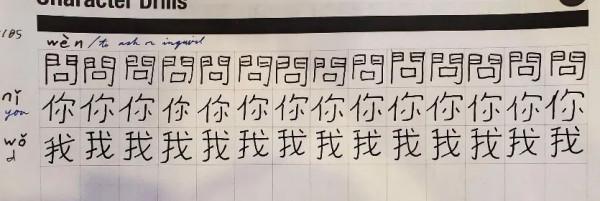 Character Drills
wèn / to ask or inquire
問問問問問問問問問問問問問問
nǐ 你你你你你你你你你你你你你你
you
wǒ 我我我我我我我我我我我我我我